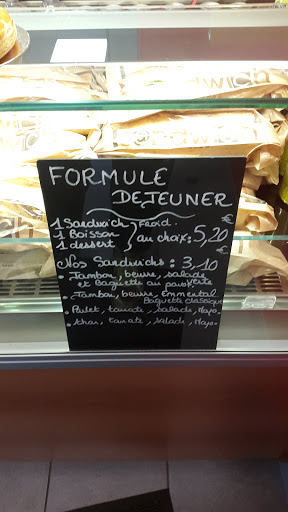 Sandwich
FORMULE
DEJEUNER
1 Sandwich } Froid.
1 Boisson } au choix: 5,20 €
1 dessert
Nos Sandwichs : 3,10 €
• Jambon, beurre, salade
et baguette au pavot
• Jambon, beurre, emmental
Baguette classique
• Poulet, tomate, salade, Mayo.
• thon, tomate, salade, Mayo.